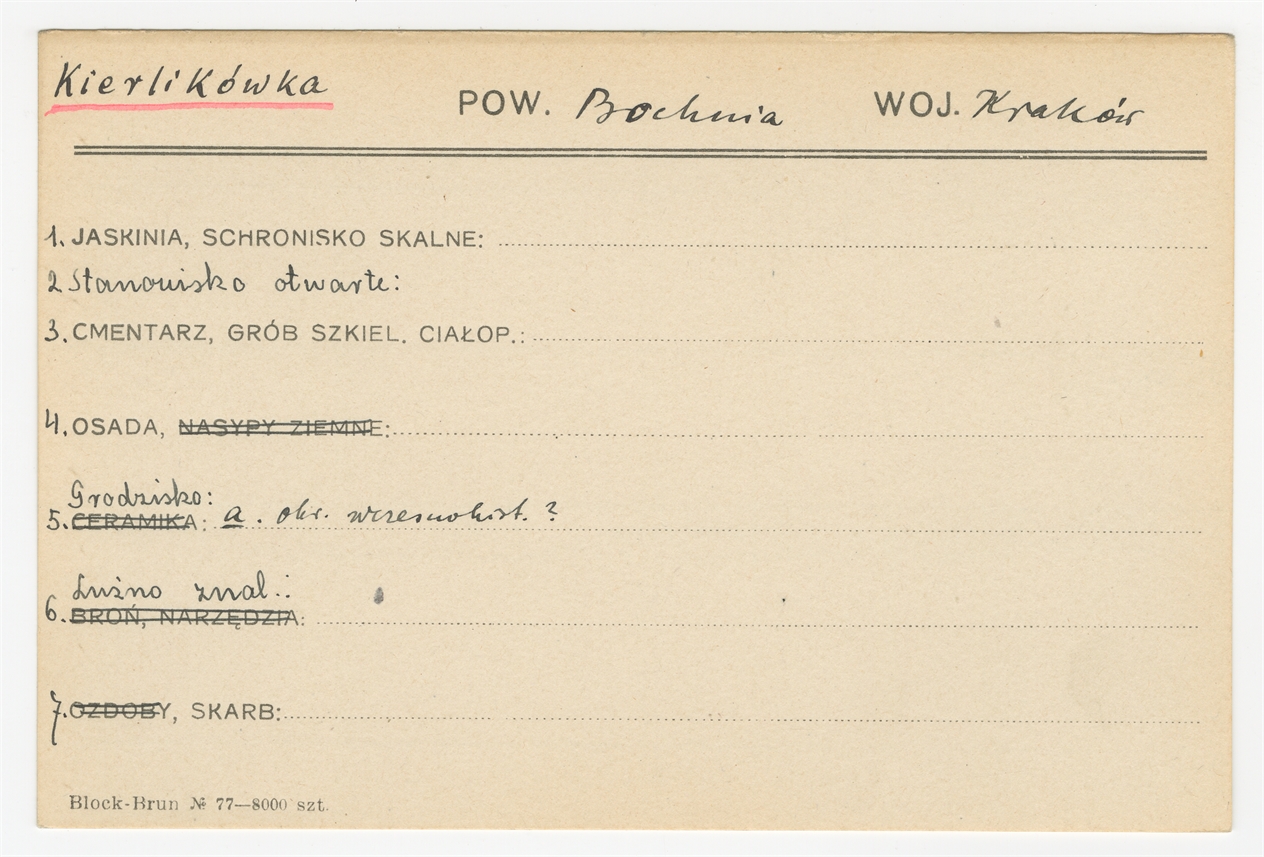 Kierlikówka POW. Bochnia WOJ. Kraków
1. JASKINIA, SCHRONISKO SKALNE:
2 Stanowisko otwarte:
3. CMENTARZ, GRÓB SZKIEL. CIAŁOP.:
4. OSADA, NASYPY ZIEMNE:
Grodzisko:
5. CERAMIKA: a. okr. wczesnohist. ?
Luźno znal.:
6. BROŃ, NARZĘDZIA:
7. OZDOBY, SKARB:
Block-Brun № 77—8000 szt.